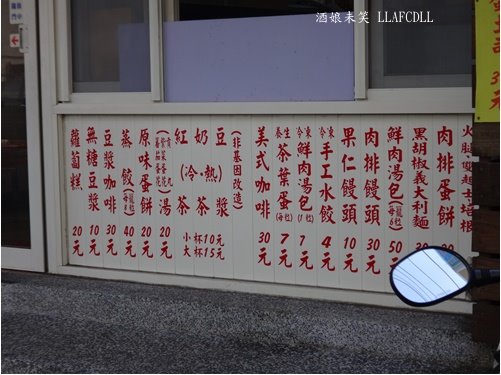 酒娘未笑 LLAFCDLL
肉排蛋餅
黑胡椒義大利麵
鮮肉湯包(每籠6粒) 50元
肉排饅頭 30元
果仁饅頭 10元
冷凍手工水餃 4元
冷凍鮮肉湯包(1粒) 7元
養生茶葉蛋(每粒) 7元
美式咖啡 30元
(非基因改造)
豆漿
奶茶
紅茶
(冷·熱)
小杯10元
大杯15元
湯 20元
原味蛋餅 20元
蒸餃(每籠8粒) 40元
豆漿咖啡 30元
無糖豆漿 10元
蘿蔔糕 20元